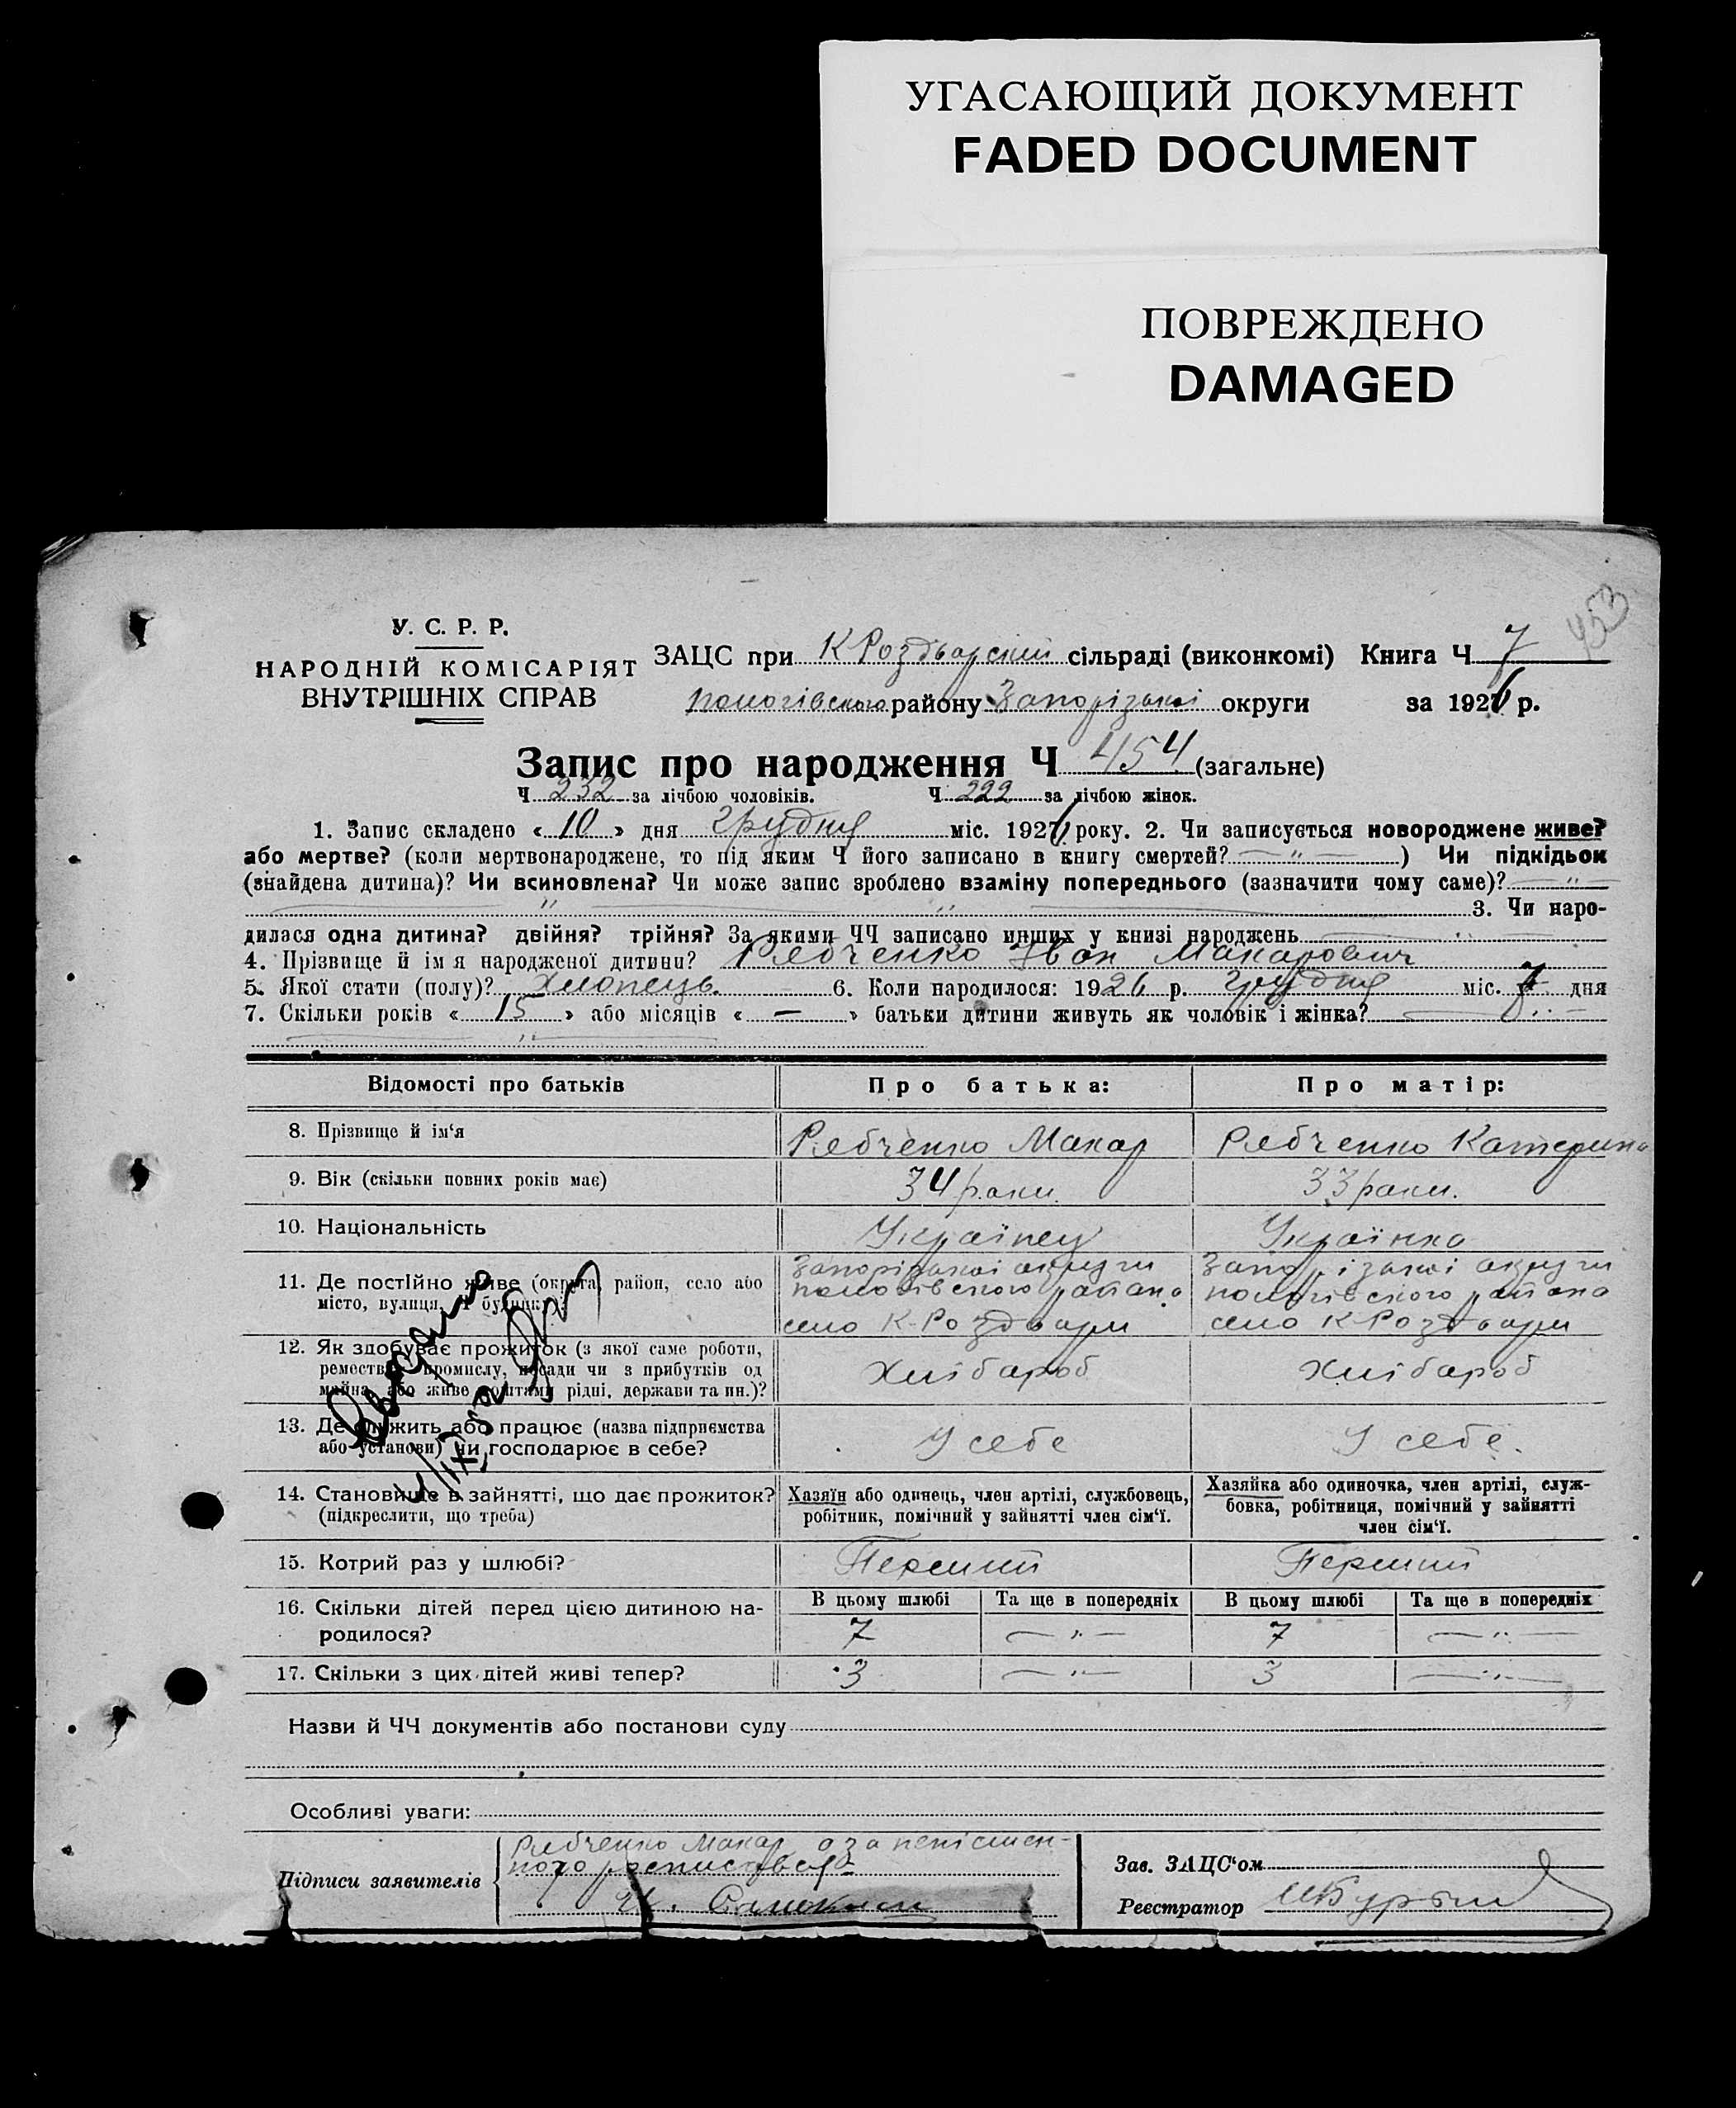 УГАСАЮЩИЙ ДОКУМЕНТ
FADED DOCUMENT
ПОВРЕЖДЕНО
DAMAGED
453
У. С. Р. Р.
НАРОДНІЙ КОМІСАРІЯТ
ВНУТРІШНІХ СПРАВ
ЗАЦС при К Роздварский сільраді (виконкомі) Книга Ч 7
пологівского району Запорізької округи за 1926 р.
Запис про народження Ч 454 (загальне)
Ч 232 за лічбою чоловіків. Ч 222 за лічбою жінок.
1. Запис складено « 10 » дня грудня міс. 1926 року. 2. Чи записується новороджене живе?
або мертве? (коли мертвонароджене, то під яким Ч його записано в книгу смертей? — " — ) Чи підкідьок
(знайдена дитина)? Чи всиновлена? Чи може запис зроблено взаміну попереднього (зазначити чому саме)? — " —
— " — " — 3. Чи наро-
дилася одна дитина? двійня? трійня? За якими ЧЧ записано инших у книзі народжень — " —
4. Прізвище й ім я народженої дитини? Рябченко Іван Макарович
5. Якої стати (полу)? Хлопець. 6. Коли народилося: 1926 р. грудня міс. 7 дня
7. Скільки років « 15 » або місяців « — » батьки дитини живуть як чоловік і жінка? — " —
— " —
Відомості про батьків Про батька: Про матір:
8. Прізвище й ім'я Рябченко Макар Рябченко Катерина
9. Вік (скільки повних років має) 34 роки. 33 роки.
10. Національність Українец Українка
11. Де постійно живе (округа, район, село або
місто, вулиця, Ч будинку)?
Запорізької округи
пологівского района
село К-Роздвари
Запорізької округи
пологівского района
село К-Роздвари
12. Як здобуває прожиток (з якої саме роботи,
ремества, промислу, посади чи з прибутків од
майна, або живе коштами рідні, держави та ин.)?
Хлібароб Хлібароб
13. Де служить або працює (назва підприємства
або установи) чи господарює в себе?
У себе У себе.
14. Становище в зайнятті, що дає прожиток?
(підкреслити, що треба)
Хазяїн або одинець, член артілі, службовець,
робітник, помічний у зайнятті член сім'ї.
Хазяйка або одиночка, член артілі, служ-
бовка, робітниця, помічний у зайнятті
член сім'ї.
15. Котрий раз у шлюбі? Перший Перший
16. Скільки дітей перед цією дитиною на-
родилося?
В цьому шлюбі Та ще в попередніх В цьому шлюбі Та ще в попередніх
7 — " — 7 — " —
17. Скільки з цих дітей живі тепер? 3 — " — 3 — " —
Назви й ЧЧ документів або постанови суду
Особливі уваги:
Підписи заявителів
Рябченко Макар а за непісмен-
ного росписався
Зав. ЗАЦС'ом
Реєстратор